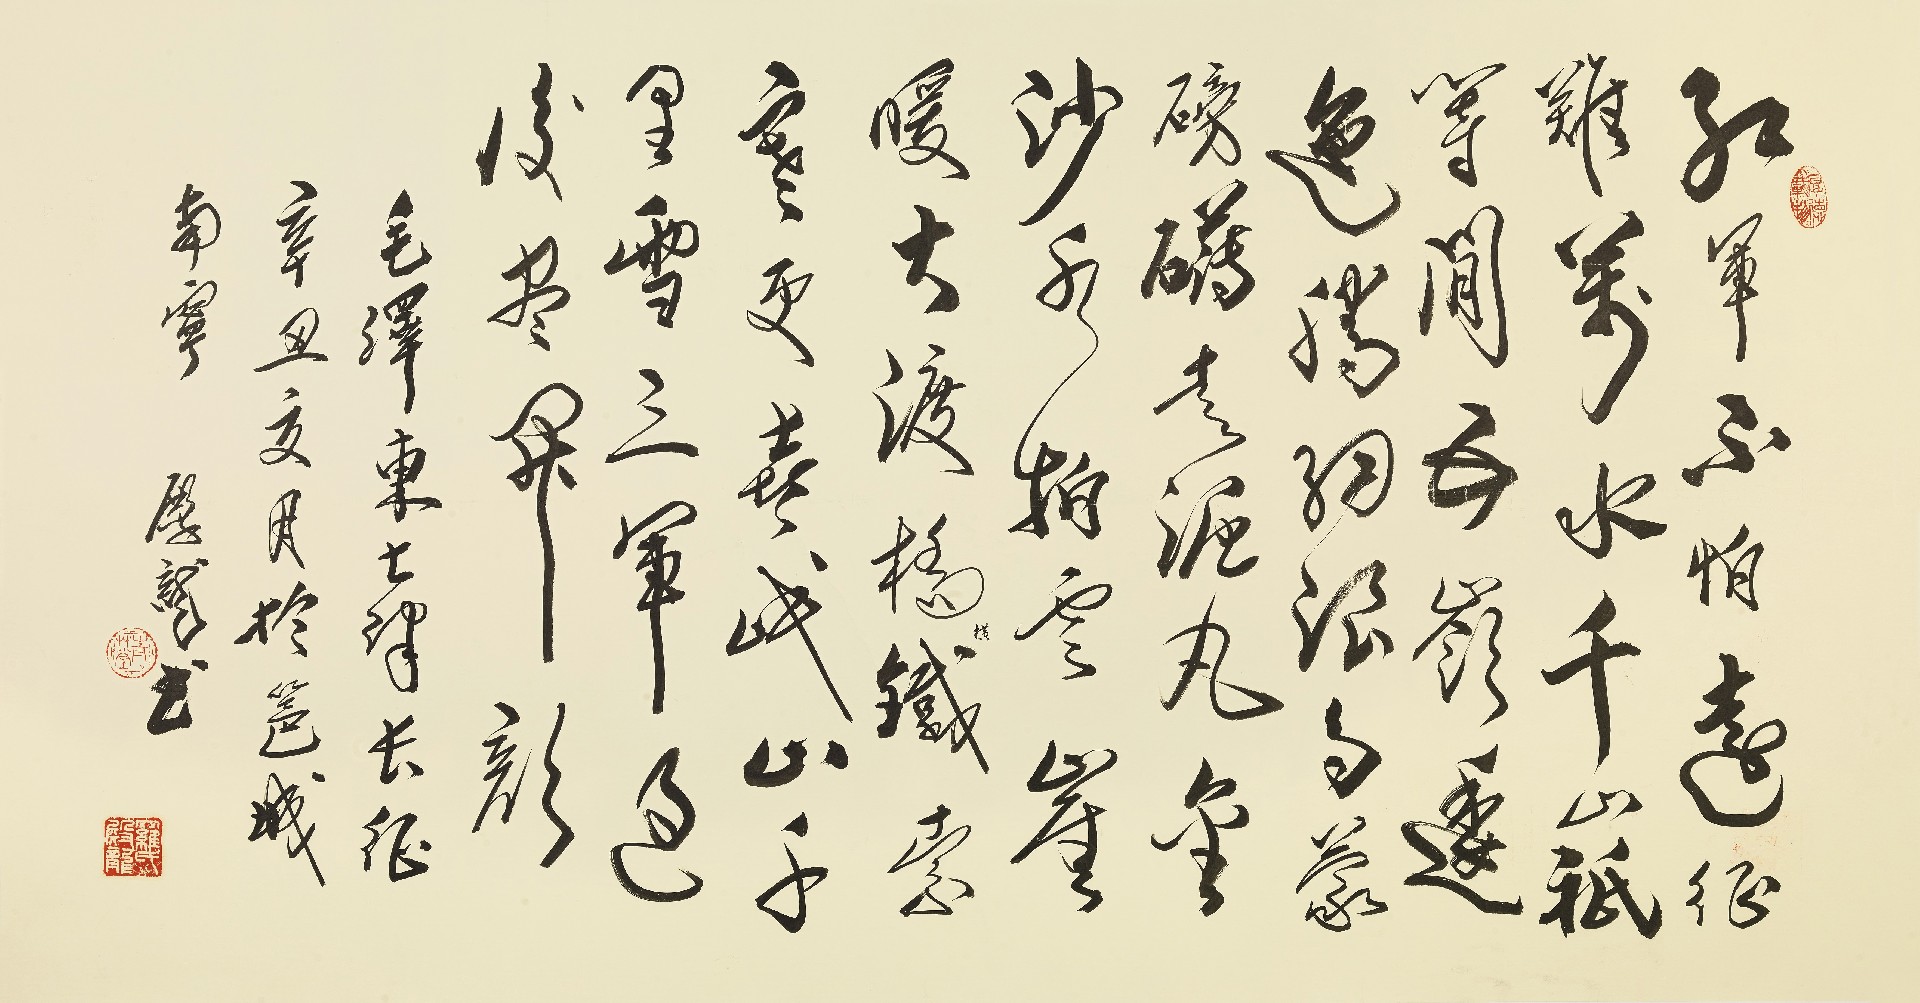 紅軍不怕遠征
難萬水千山祇
等閒五嶺逶
迤騰細浪烏蒙
磅礴走泥丸金
沙水拍雲崖
暖大渡橋横鐵索
寒更喜岷山千
里雪三軍過
後盡開顏
毛澤東七律长征
辛丑夏月於邕城
南寧 殷龍书
厚德載物